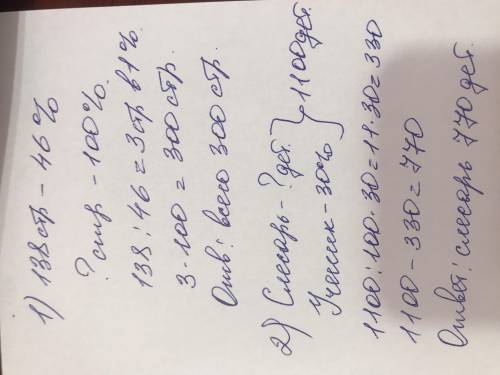 1) 138 стр – 46%
? стр – 100%
138 : 46 = 3 стр в 1%.
3 · 100 = 300 стр.
Отв: всего 300 стр.
2) Слесарь – ? дет. } 1100 дет.
Ученик – 30%
1100 : 100 · 30 = 11 · 30 = 330
1100 – 330 = 770
Ответ: слесарь 770 дет.